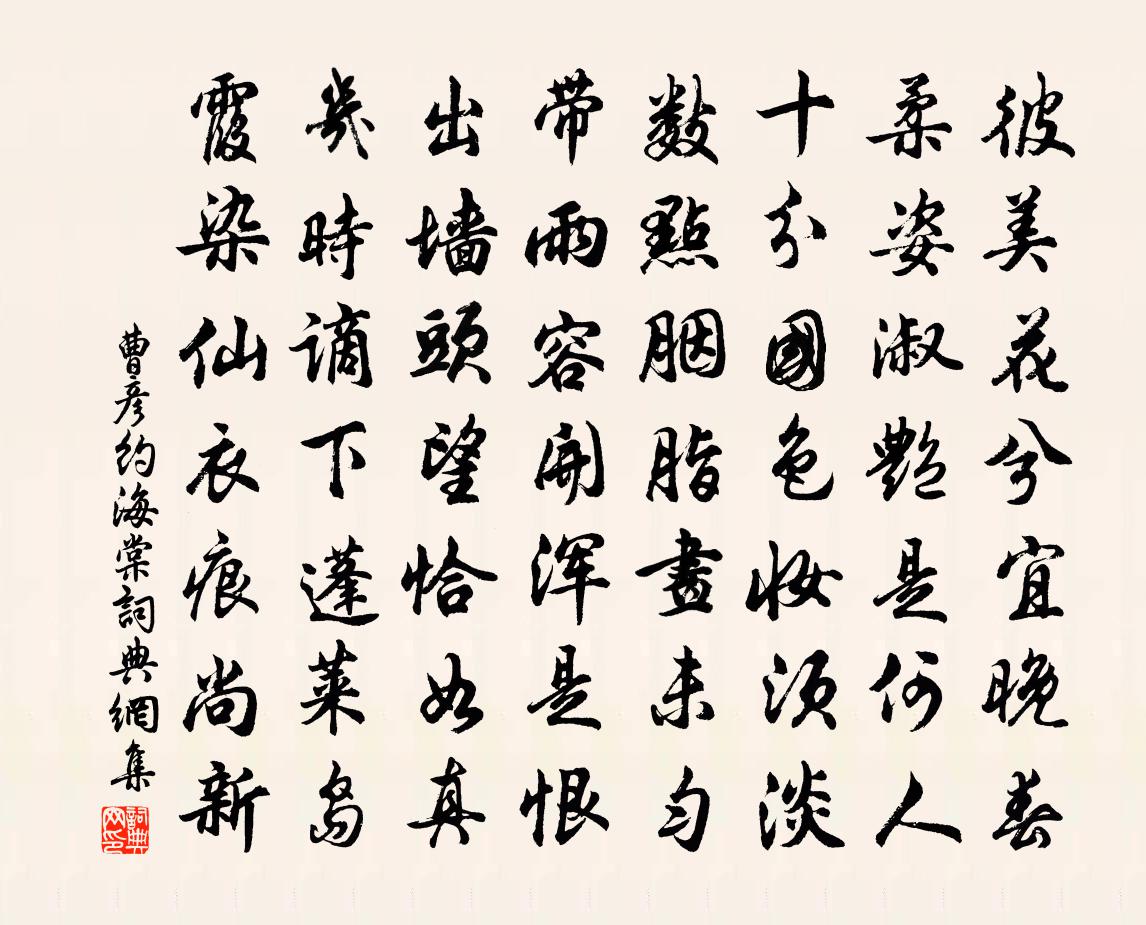 彼美花兮宜晚春
柔姿淑艷是何人
十分國色妝須淡
數點胭脂畫未勻
带雨容開渾是恨
出墙頭望恰如真
幾時謫下蓬萊島
霞染仙衣痕尚新
曹彦約海棠詞典網集
詞典网印